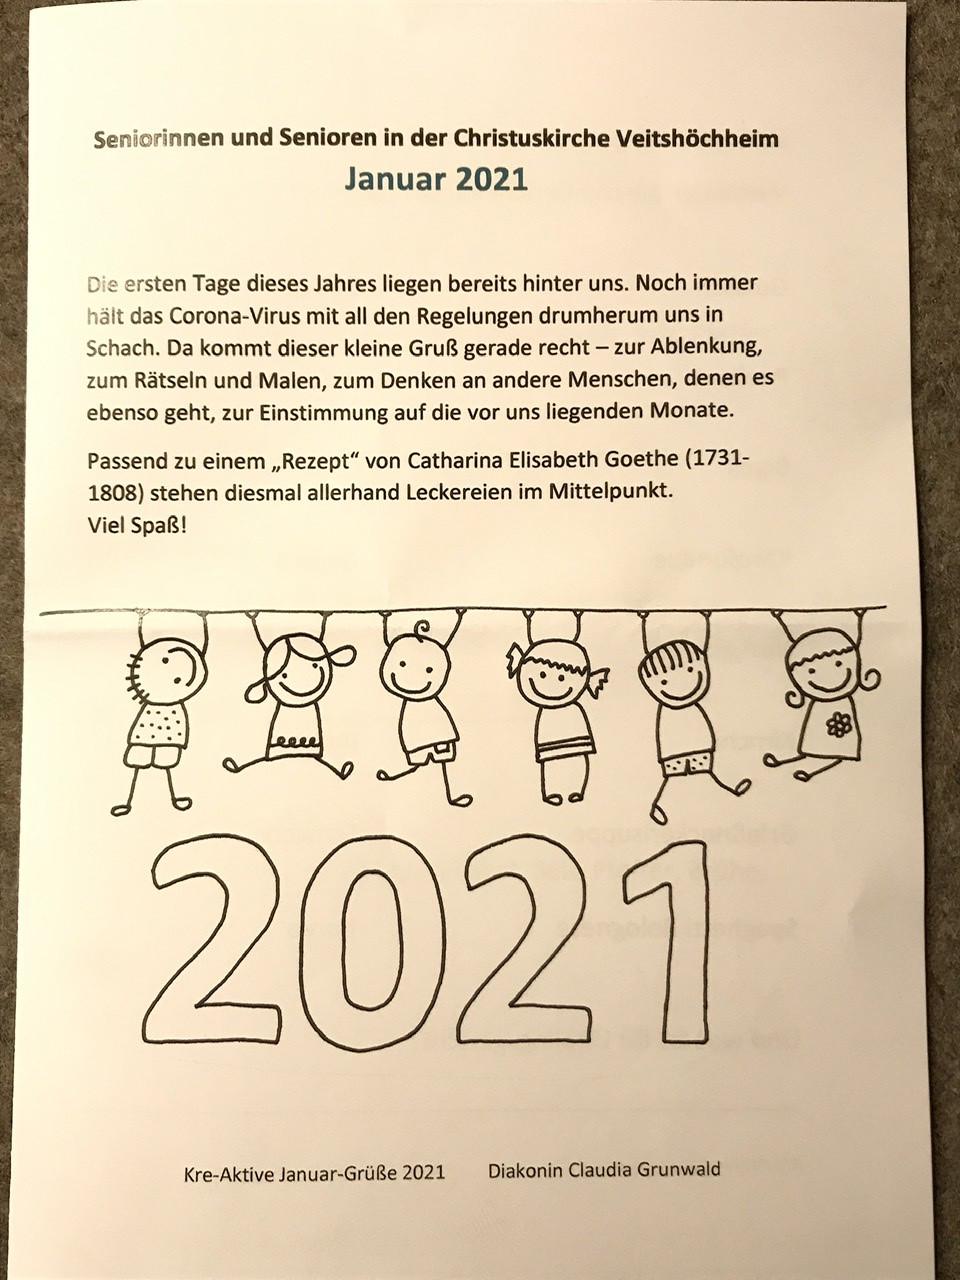 Seniorinnen und Senioren in der Christuskirche Veitshöchheim
Januar 2021
Die ersten Tage dieses Jahres liegen bereits hinter uns. Noch immer
hält das Corona-Virus mit all den Regelungen drumherum uns in
Schach. Da kommt dieser kleine Gruß gerade recht – zur Ablenkung,
zum Rätseln und Malen, zum Denken an andere Menschen, denen es
ebenso geht, zur Einstimmung auf die vor uns liegenden Monate.
Passend zu einem „Rezept“ von Catharina Elisabeth Goethe (1731-
1808) stehen diesmal allerhand Leckereien im Mittelpunkt.
Viel Spaß!
2021
Kre-Aktive Januar-Grüße 2021 Diakonin Claudia Grunwald